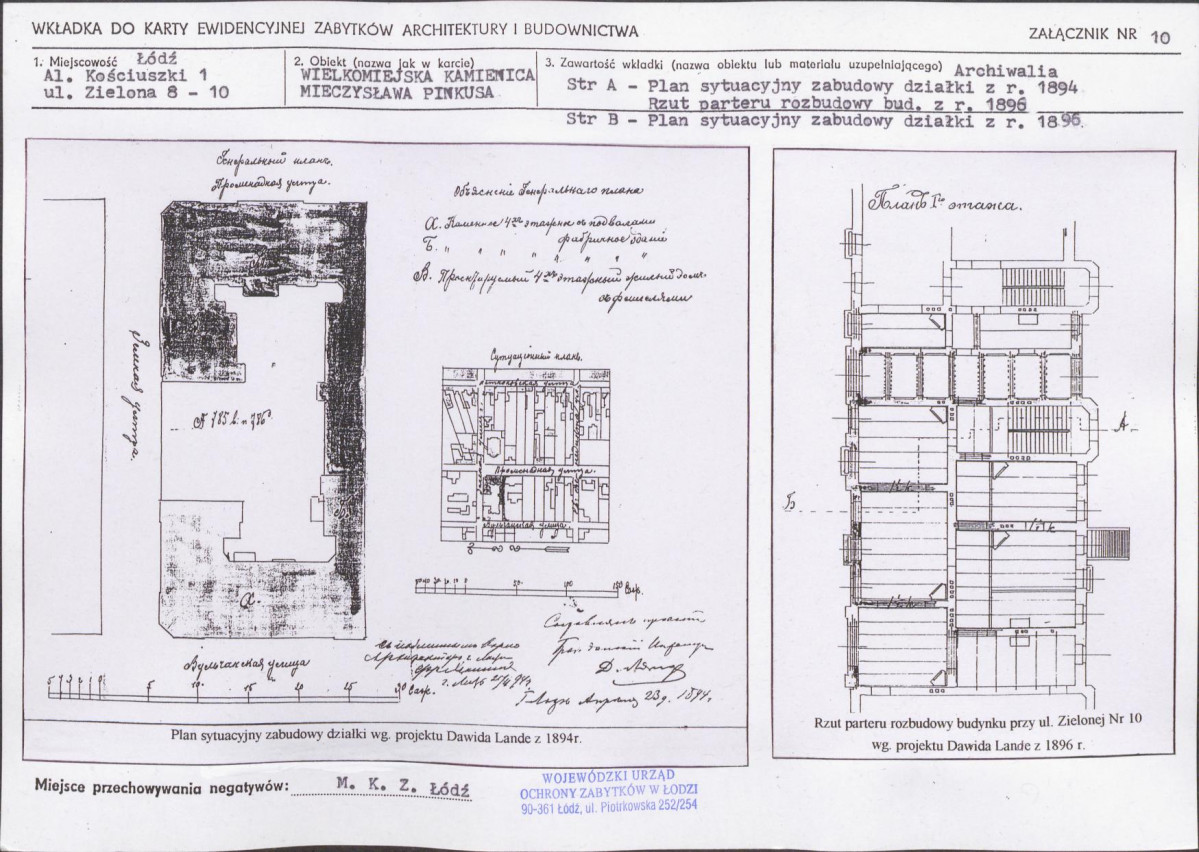 WKŁADKA DO KARTY EWIDENCYJNEJ ZABYTKÓW ARCHITEKTURY I BUDOWNICTWA
ZAŁĄCZNIK NR 10
1. Miejscowość Łódź
Al. Kościuszki 1
ul. Zielona 8 - 10
2. Obiekt (nazwa jak w karcie)
WIELKOMIEJSKA KAMIENICA
MIECZYSŁAWA PINKUSA
3. Zawartość wkładki (nazwa obiektu lub materiału uzupełniającego) Archiwalia
Str A - Plan sytuacyjny zabudowy działki z r. 1894
Rzut parteru rozbudowy bud. z r. 1896
Str B - Plan sytuacyjny zabudowy działki z r. 1896.
Генеральный планъ.
Променадная улица.
Объясненіе Генеральнаго плана
А. Каменное 4хъ этажное съ подвалами
Б. " " " " " фабричное зданіе
В. Проектируемый 4хъ этажный жилый домъ
Зеленая улица.
Ситуаціонный планъ.
Променадная улица.
Вульчанская улица
Саж.
Вульчанская улица
5 10 15 20 25 30 Саж.
Составлялъ проектъ
Д. Ланде
г. Лодзь Апрель 23 д. 1894 г.
Планъ Iго этажа.
А
Б
Plan sytuacyjny zabudowy działki wg. projektu Dawida Lande z 1894r.
Rzut parteru rozbudowy budynku przy ul. Zielonej Nr 10
wg. projektu Dawida Lande z 1896 r.
Miejsce przechowywania negatywów: M. K. Z. Łódź
WOJEWÓDZKI URZĄD
OCHRONY ZABYTKÓW W ŁODZI
90-361 Łódź, ul. Piotrkowska 252/254